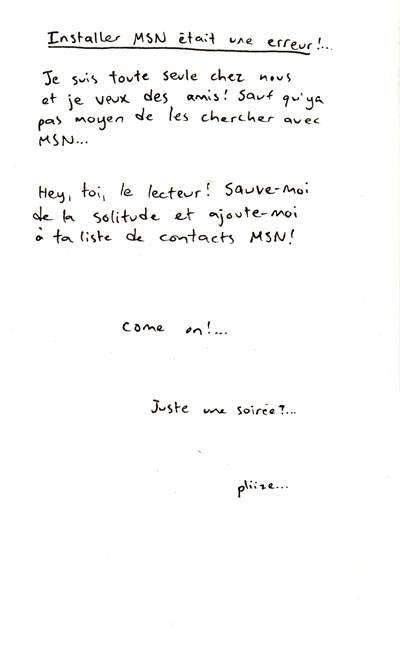 Installer MSN était une erreur!...
Je suis toute seule chez nous
et je veux des amis! Sauf qu'ya
pas moyen de les chercher avec
MSN...
Hey, toi, le lecteur! Sauve-moi
de la solitude et ajoute-moi
à ta liste de contacts MSN!
Come on!...
Juste une soirée?...
pliize...